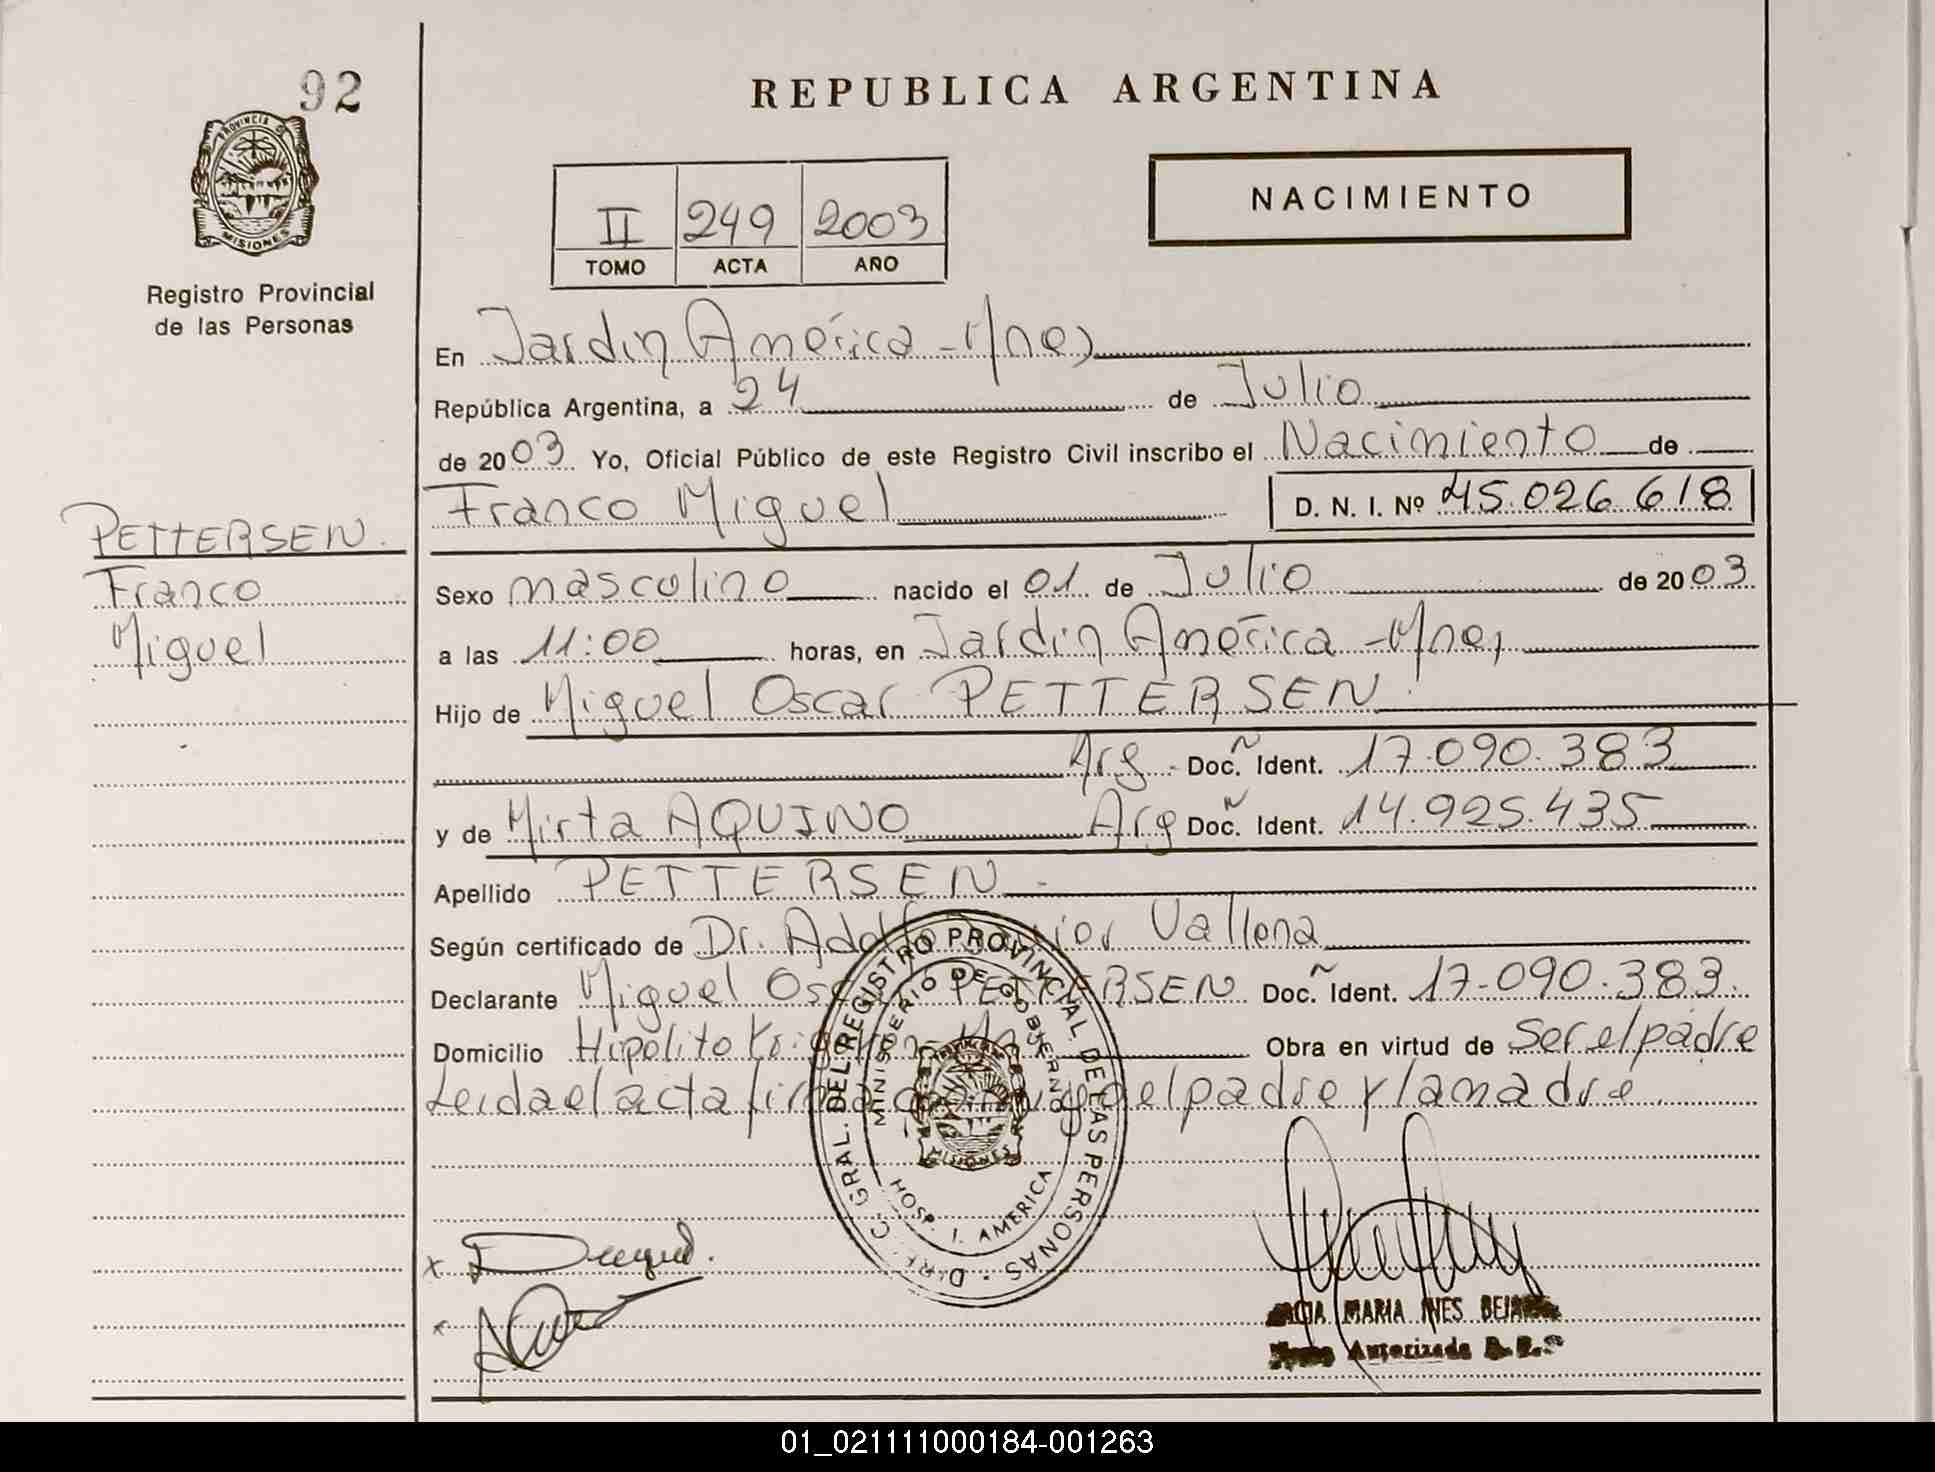 92
REPUBLICA ARGENTINA
PROVINCIA DE
MISIONES
Registro Provincial
de las Personas
II 249 2003
TOMO ACTA AÑO
NACIMIENTO
En Jardin América - Mnes
República Argentina, a 24 de Julio
de 2003 Yo, Oficial Público de este Registro Civil inscribo el Nacimiento de
Franco Miguel D. N. I. Nº 45.026.618
PETTERSEN.
Franco
Miguel
Sexo masculino nacido el 01 de Julio de 2003
a las 11:00 horas, en Jardin América - Mnes
Hijo de Miguel Oscar PETTERSEN.
Arg - Doc. Ident. 17.090.383
y de Mirta AQUINO Arg Doc. Ident. 14.925.435
Apellido PETTERSEN -
Según certificado de Dr. Adolfo Vallena
Declarante Miguel Oscar PETTERSEN Doc. Ident. 17-090.383.
Domicilio Hipólito Obra en virtud de ser el padre
Leida el acta el padre y la madre.
DIR. C. GRAL. DEL REGISTRO PROVINCIAL DE LAS PERSONAS
MINISTERIO DE GOBIERNO
MISIONES
HOSP. J. AMERICA
MARIA INES
Autorizada
01_021111000184-001263